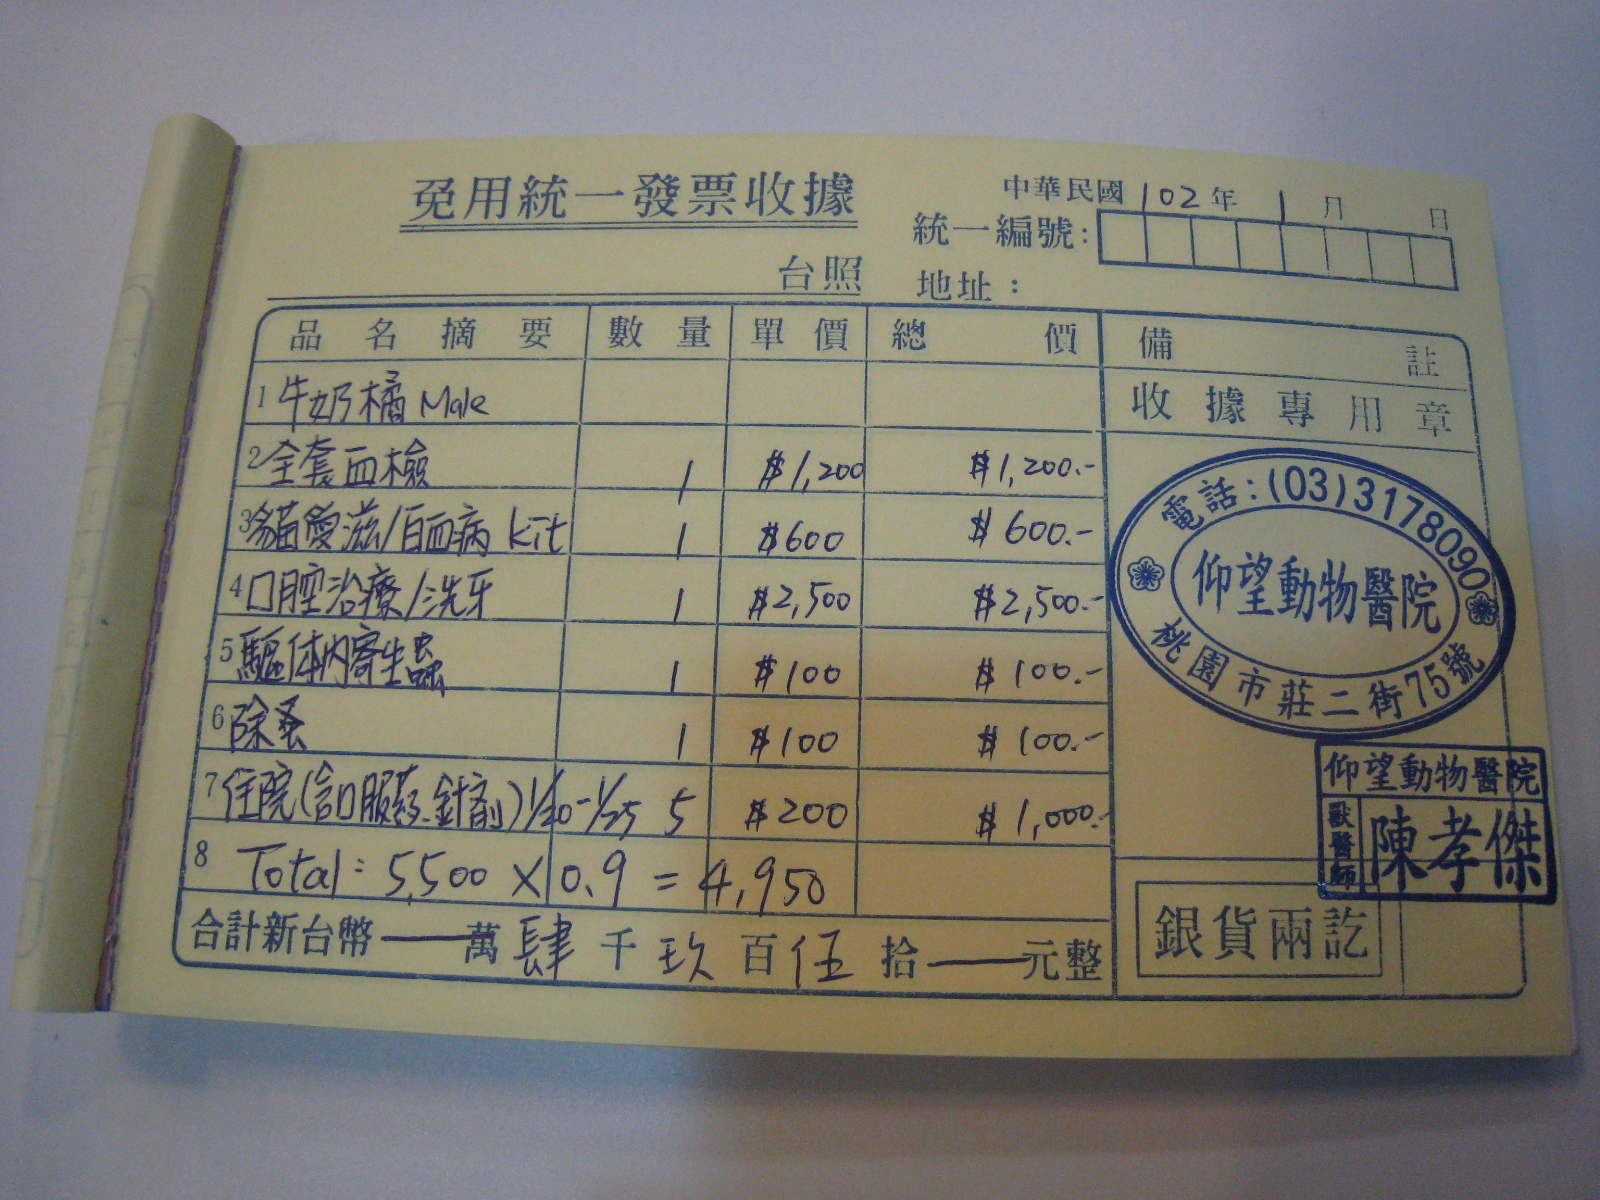 免用統一發票收據
中華民國102年1月 日
統一編號:
台照 地址:
品名摘要 數量 單價 總價 備註
收據專用章
1 牛奶橘 Male
2 全套血檢 1 $1,200 $1,200.-
3 貓愛滋/白血病 kit 1 $600 $600.-
4 口腔治療/洗牙 1 $2,500 $2,500.-
5 驅体內寄生蟲 1 $100 $100.-
6 除蚤 1 $100 $100.-
7 住院(含口服葯、針劑) 1/20-1/25 5 $200 $1,000.-
8 Total: 5,500 × 0.9 = 4,950
合計新台幣 — 萬 肆 千 玖 百 伍 拾 — 元整
電話:(03)3178090
仰望動物醫院
桃園市莊二街75號
仰望動物醫院
獸醫師 陳孝傑
銀貨兩訖